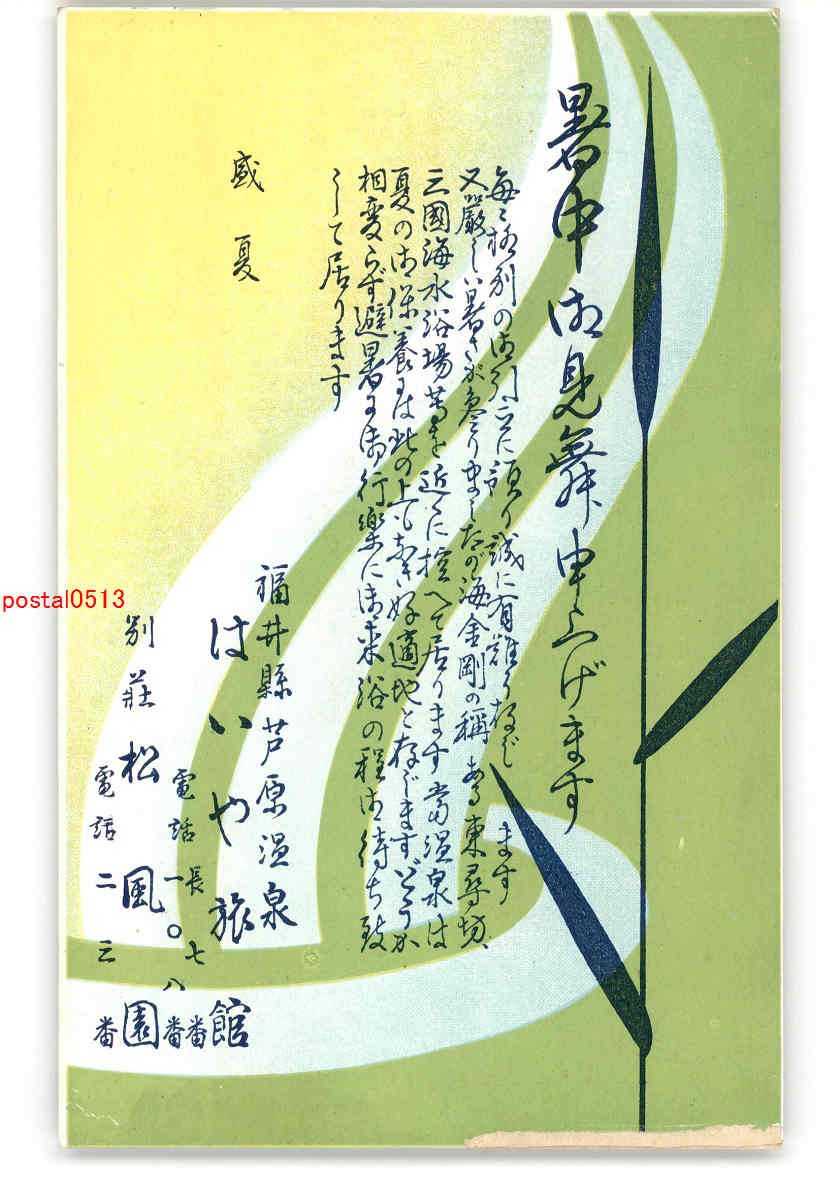 暑中御見舞申上げます
毎々格別の御引立に預り誠に有難く存じます
又嚴しい暑さが参りましたが海金剛の稱ある東尋坊、
三國海水浴場等を近くに控へて居ります當温泉は
夏の御保養には此の上もなき好適地と存じますどうか
相変らず避暑に御行楽に御来浴の程御待ち致
して居ります
盛夏
福井縣芦原温泉
はいや旅館
電話 長 七番
一〇八番
別莊 松風園
電話 二三番
postal0513